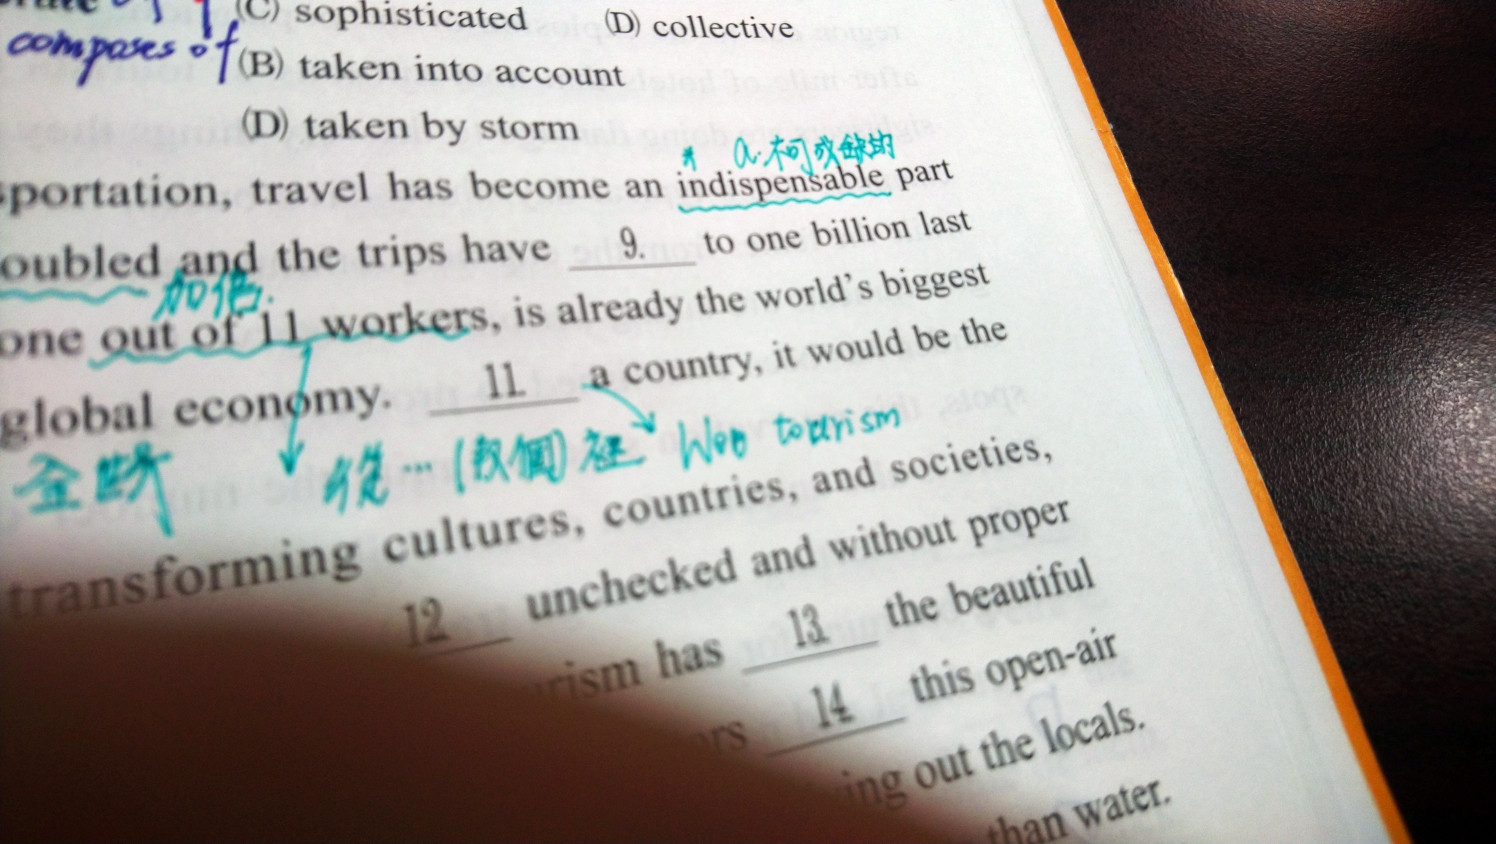 (C) sophisticated (D) collective
composes of (B) taken into account
(D) taken by storm
* a.不可或缺的
sportation, travel has become an indispensable part
oubled and the trips have 9. to one billion last
加倍.
one out of 11 workers, is already the world's biggest
global economy. 11 a country, it would be the
從…(數個)裡 Web tourism
transforming cultures, countries, and societies,
12 unchecked and without proper
rism has 13 the beautiful
rs 14 this open-air
ing out the locals.
than water.